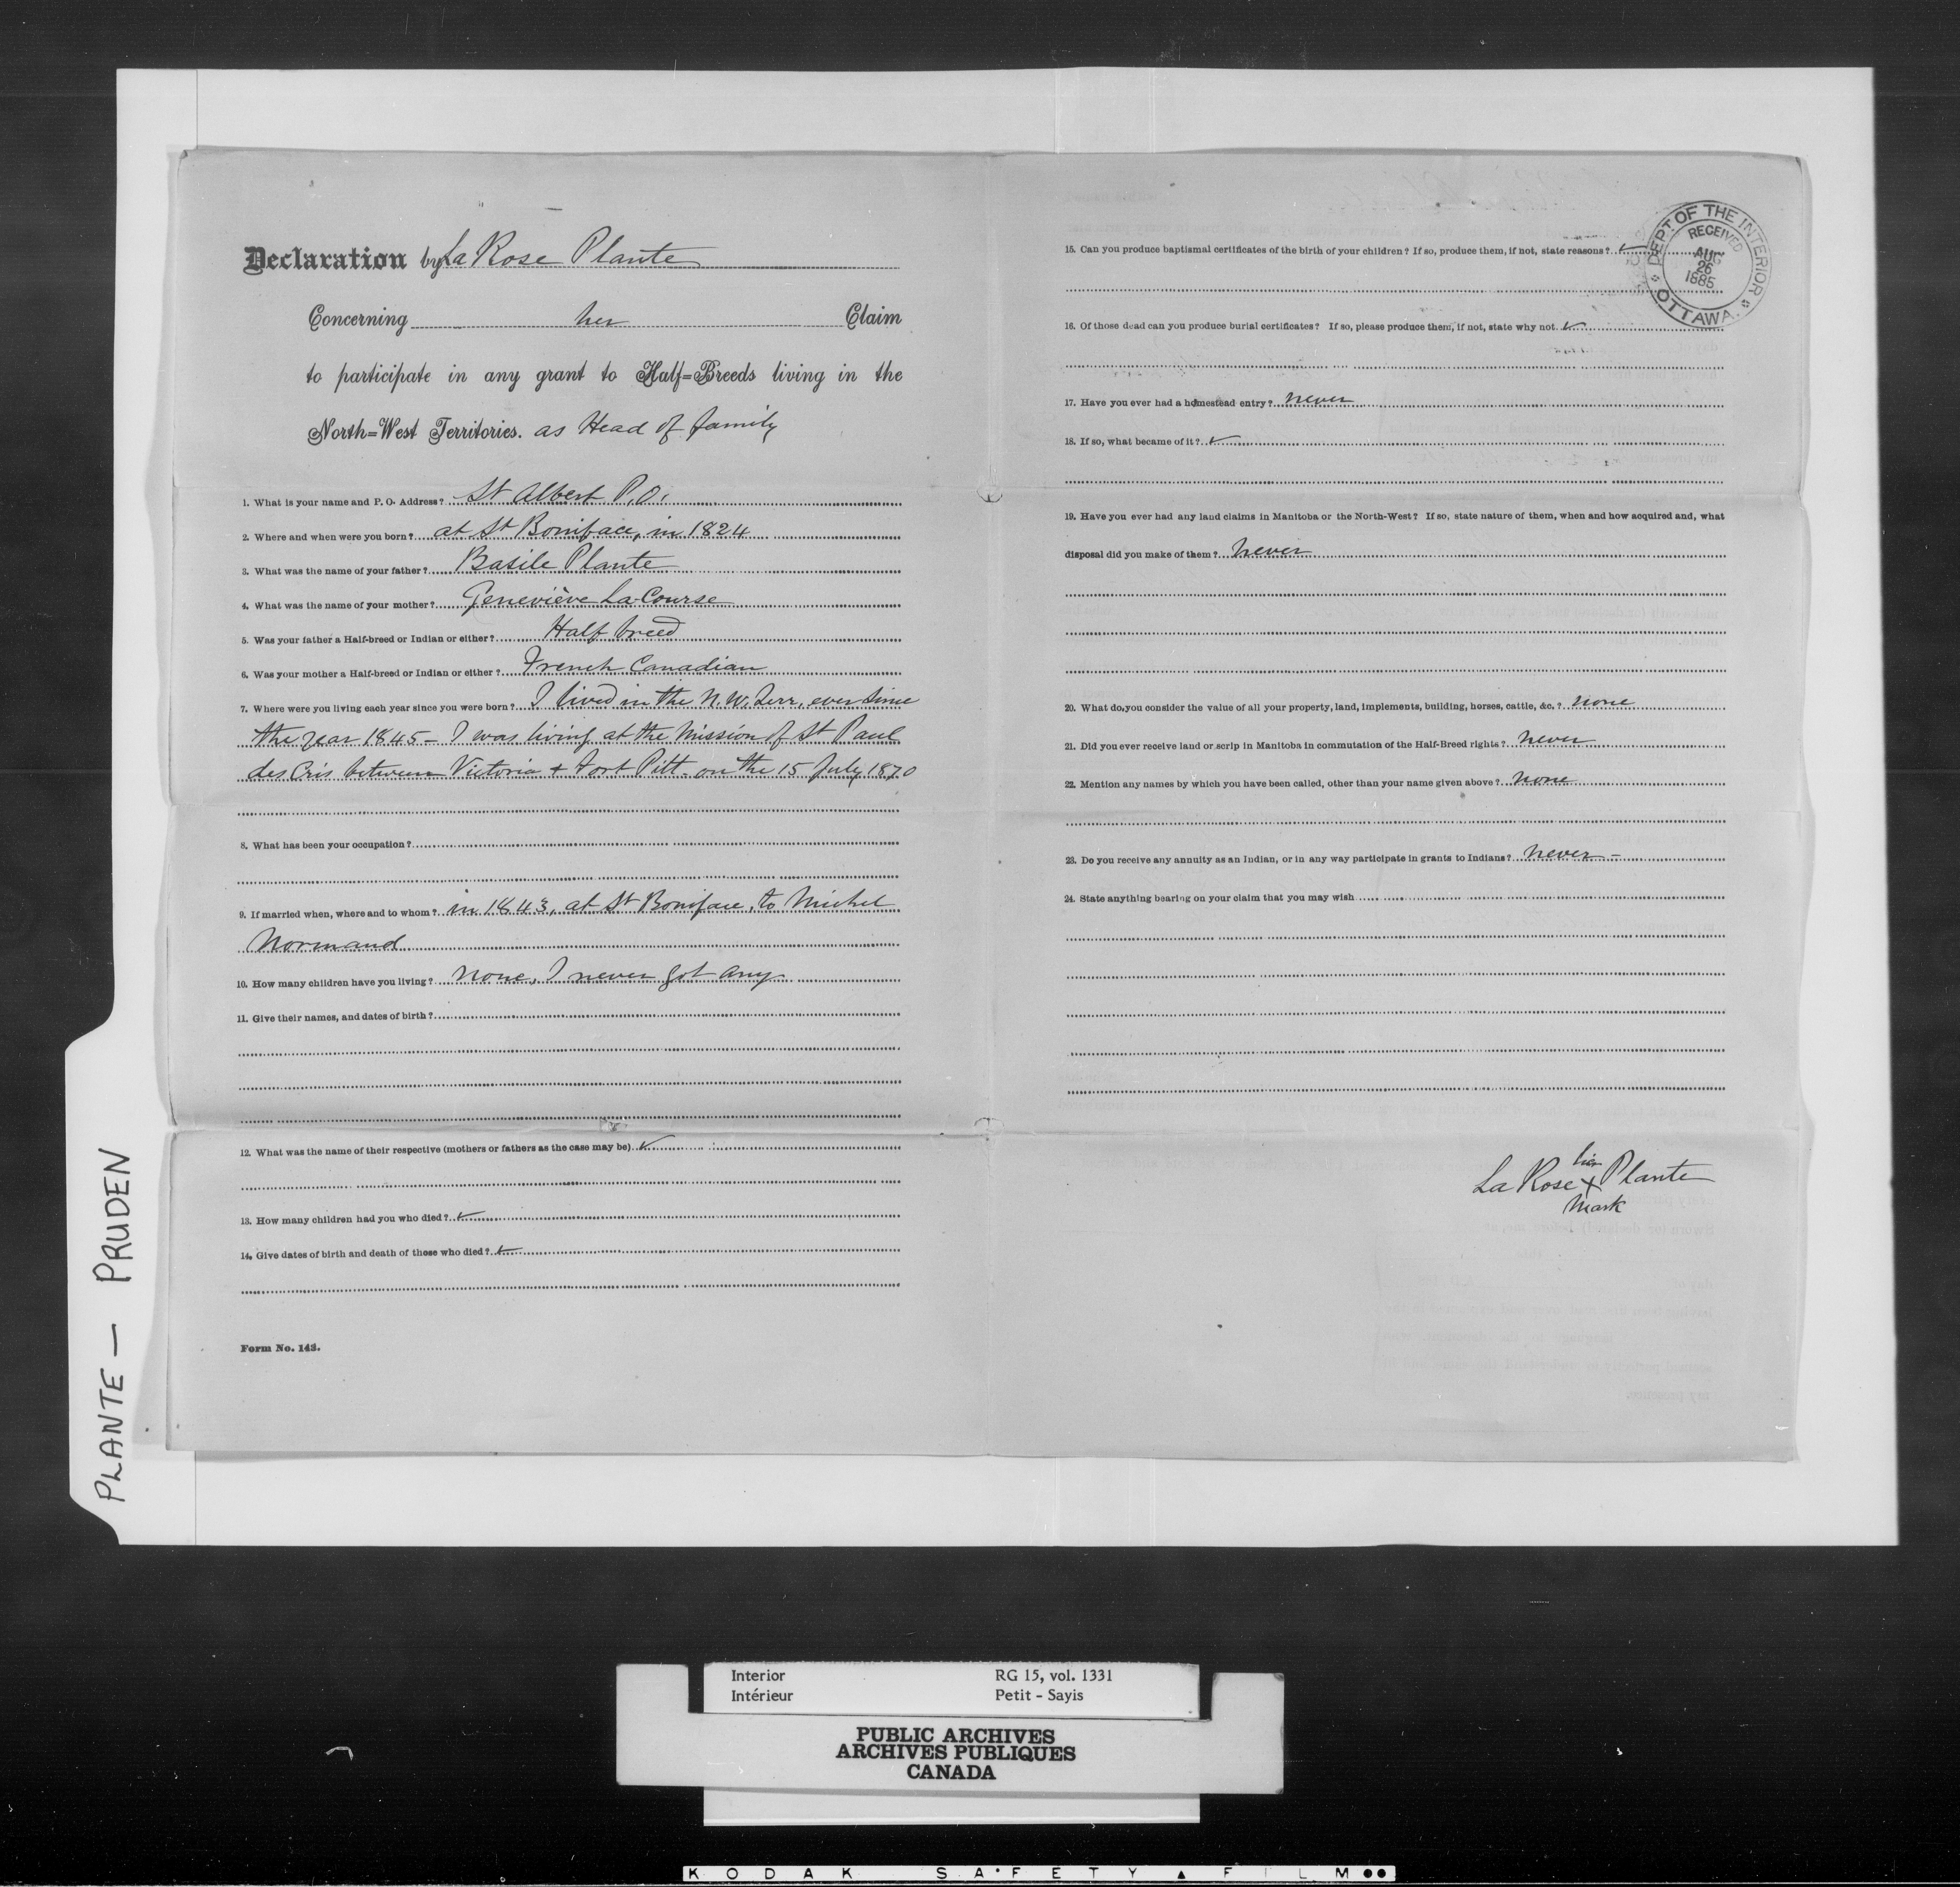 Declaration by La Rose Plante
Concerning her Claim
to participate in any grant to Half=Breeds living in the
North=West Territories. as Head of family
1. What is your name and P. O. Address? St Albert P.O.
2. Where and when were you born? at St Boniface, in 1824
3. What was the name of your father? Basile Plante
4. What was the name of your mother? Geneviève La Course
5. Was your father a Half-breed or Indian or either? Half breed
6. Was your mother a Half-breed or Indian or either? French Canadian
7. Where were you living each year since you were born? I lived in the N.W. Terr, ever since
the year 1845 - I was living at the Mission of St Paul
des Cris between Victoria + Fort Pitt - on the 15 July 1870
8. What has been your occupation?
9. If married when, where and to whom? in 1843, at St Boniface, to Michel
Normand
10. How many children have you living? None, I never got any
11. Give their names, and dates of birth?
12. What was the name of their respective (mothers or fathers as the case may be) ✓
13. How many children had you who died? ✓
14. Give dates of birth and death of those who died? ✓
Form No. 143.
15. Can you produce baptismal certificates of the birth of your children? If so, produce them, if not, state reasons? ✓
16. Of those dead can you produce burial certificates? If so, please produce them, if not, state why not ✓
17. Have you ever had a homestead entry? never
18. If so, what became of it? ✓
19. Have you ever had any land claims in Manitoba or the North-West? If so, state nature of them, when and how acquired and, what
disposal did you make of them? Never
20. What do you consider the value of all your property, land, implements, building, horses, cattle, &c.? none
21. Did you ever receive land or scrip in Manitoba in commutation of the Half-Breed rights? Never
22. Mention any names by which you have been called, other than your name given above? none
23. Do you receive any annuity as an Indian, or in any way participate in grants to Indians? Never -
24. State anything bearing on your claim that you may wish
her
La Rose X Plante
Mark
DEPT OF THE INTERIOR
RECEIVED
AUG
26
1885
OTTAWA.
PLANTE — PRUDEN
Interior RG 15, vol. 1331
Intérieur Petit - Sayis
PUBLIC ARCHIVES
ARCHIVES PUBLIQUES
CANADA
KODAK SAFETY ▲ FILM ●●